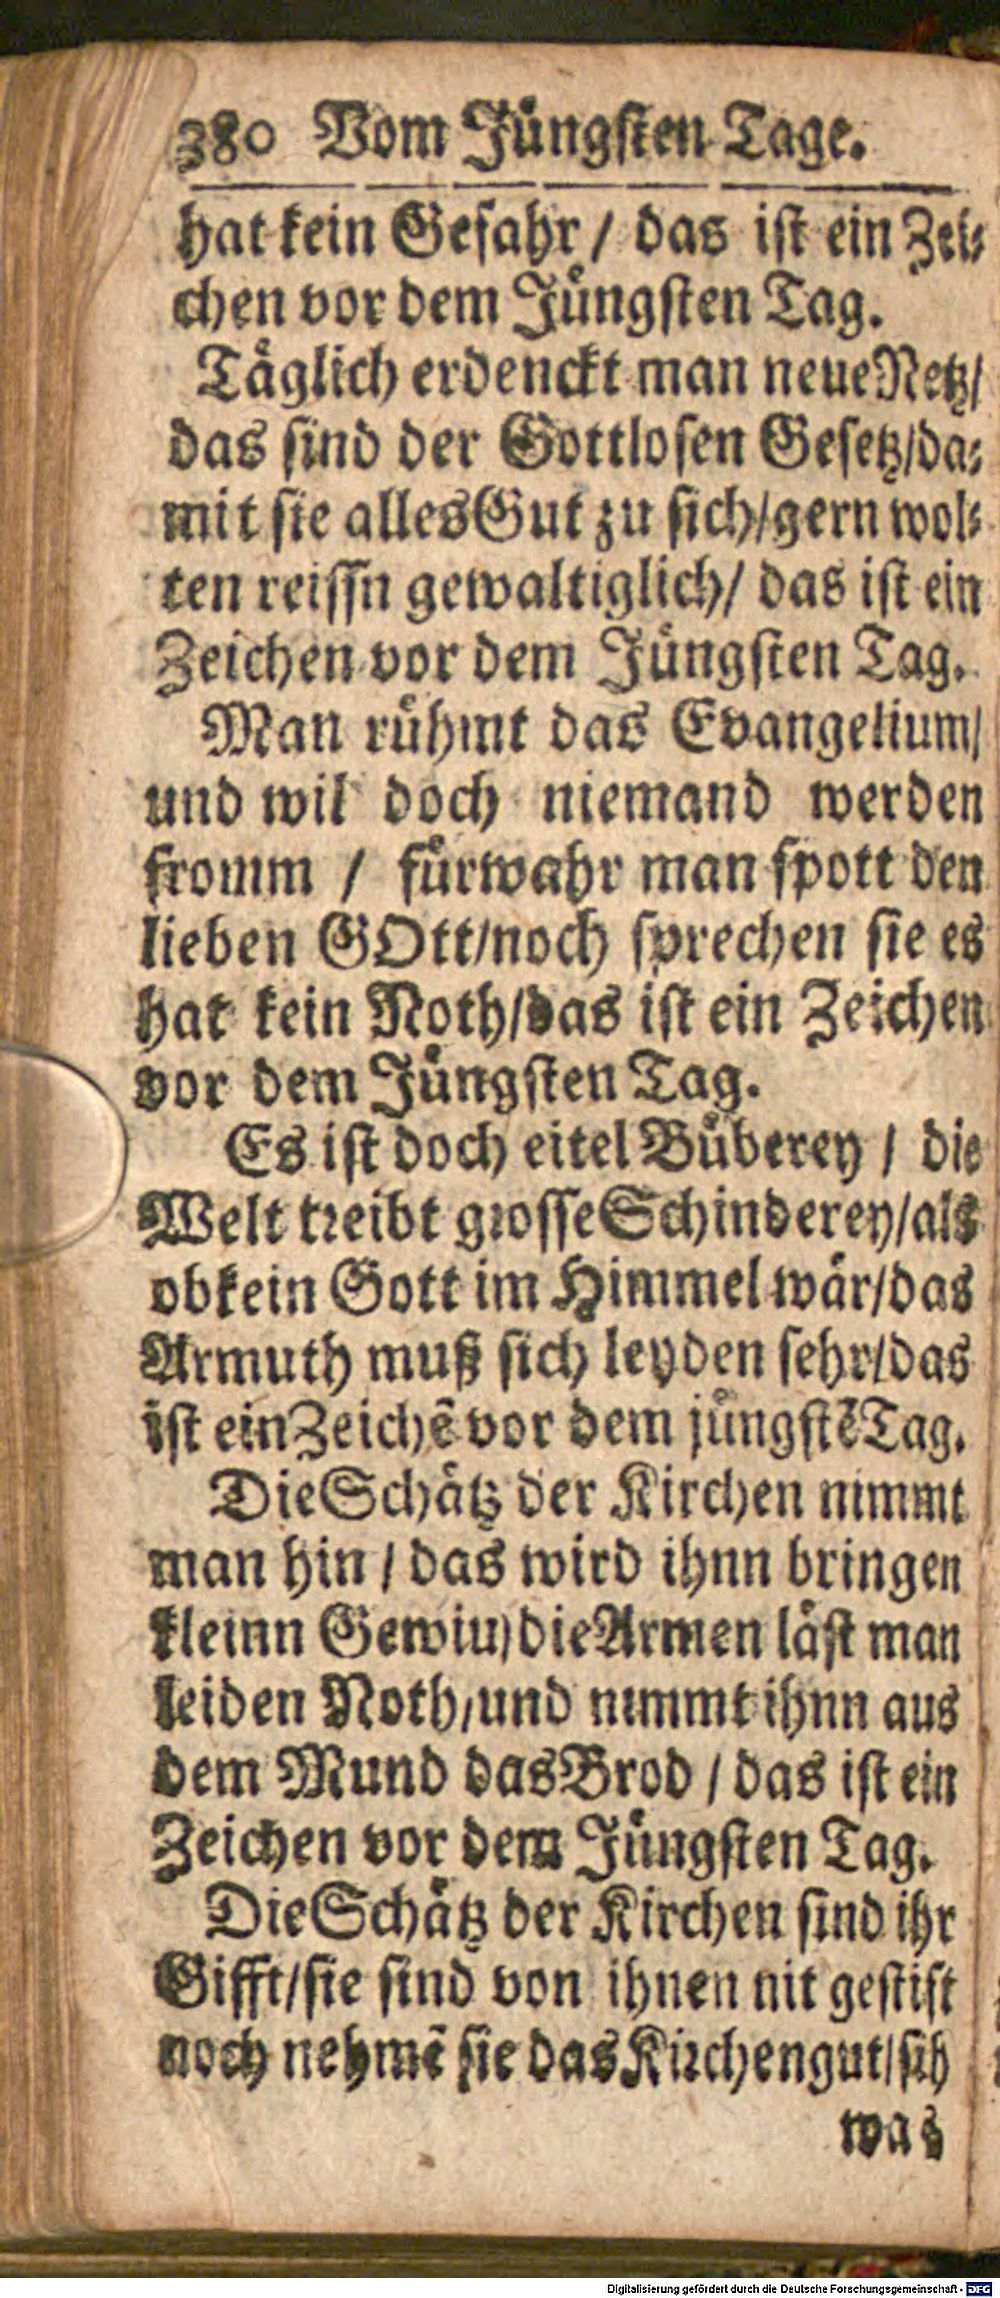 380 Vom Jüngsten Tage.
hat kein Gefahr / das ist ein Zei-
chen vor dem Jüngsten Tag.
Täglich erdenckt man neue Netz/
das sind der Gottlosen Gesetz/da-
mit sie alles Gut zu sich/gern wol-
ten reissn gewaltiglich/ das ist ein
Zeichen vor dem Jüngsten Tag.
Man rühmt das Evangelium/
und wil doch niemand werden
fromm / fürwahr man spott den
lieben GOtt/noch sprechen sie es
hat kein Noth/das ist ein Zeichen
vor dem Jüngsten Tag.
Es ist doch eitel Büberey / die
Welt treibt grosse Schinderey/als
ob kein Gott im Himmel wär/das
Armuth muß sich leyden sehr/das
ist ein Zeichē vor dem jüngstē Tag.
Die Schätz der Kirchen nimmt
man hin / das wird ihnn bringen
kleinn Gewiu/die Armen läst man
leiden Noth/und nimmt ihnn aus
dem Mund das Brod / das ist ein
Zeichen vor dem Jüngsten Tag.
Die Schätz der Kirchen sind ihr
Gifft/sie sind von ihnen nit gestift
noch nehmē sie das Kirchengut/sih
was
Digitalisierung gefördert durch die Deutsche Forschungsgemeinschaft - DFG